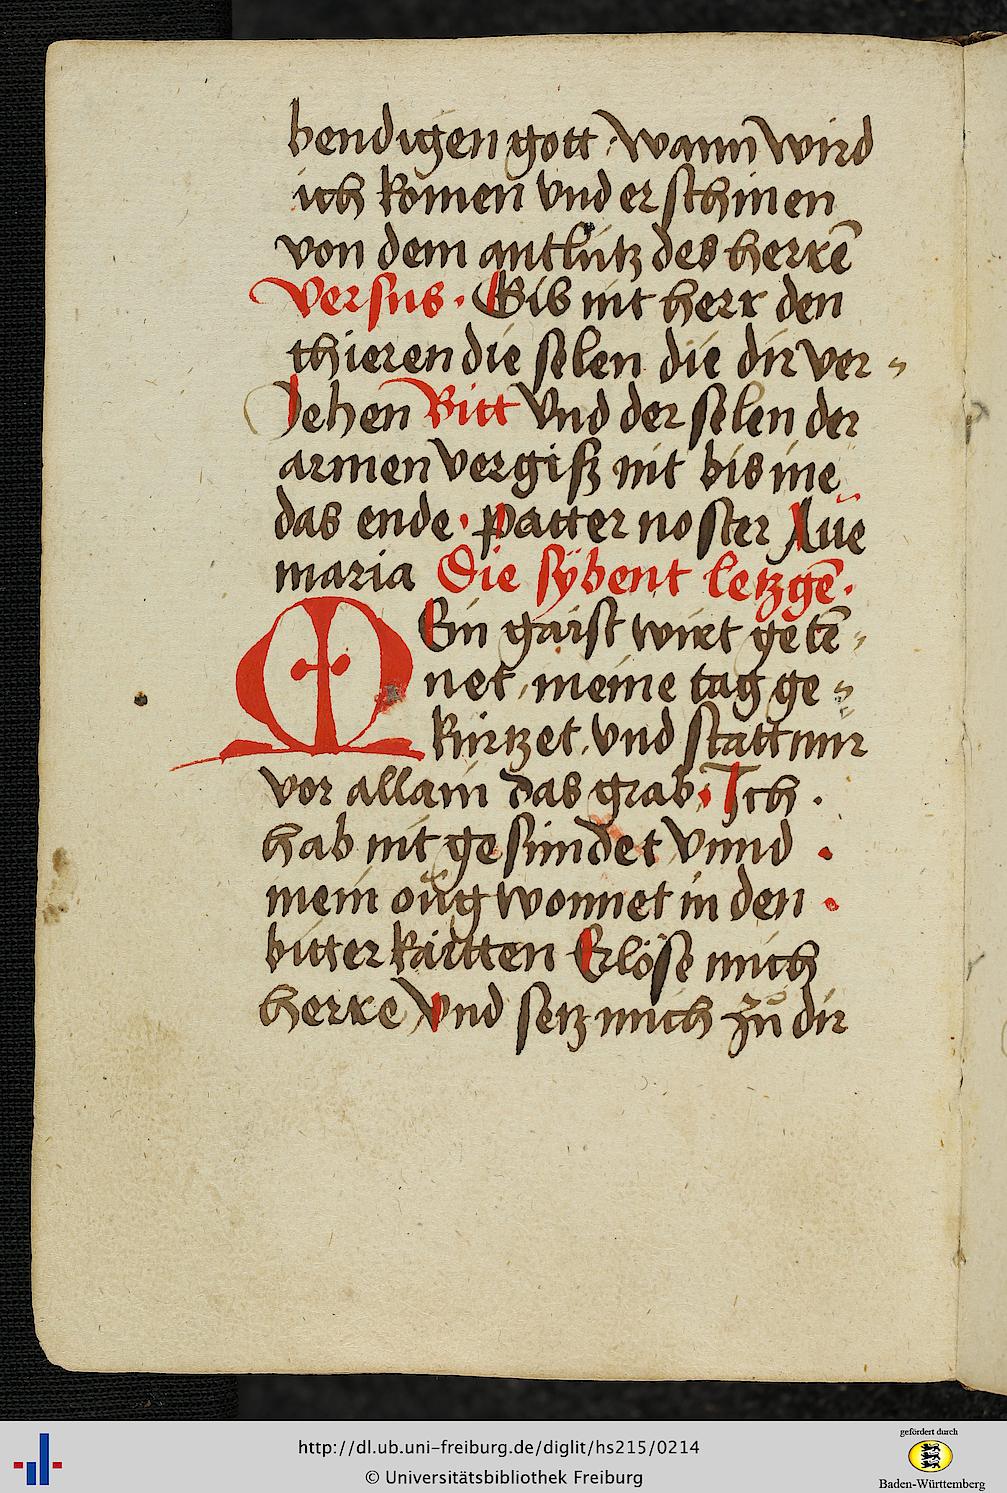 bendigen gott Wann wird
ich komen vnd erschinen
von dem antlütz des herrē
Versus. Gib nit herr den
thieren die selen die dir ver-
Jehen Bitt Vnd der selen der
armen Vergiß nit bis ine
das ende. patter noster Aue
maria Die sÿbent letzgē.
MEin gaist wirt getē-
net, meine tag ge-
kürtzet, vnd statt mir
vor allain das grab. Ich.
hab nit gesündet Vnnd
mein oǔg wonnet in den
bitterkaitten Erlöse mich
herre Vnd setz mich zů dir
http://dl.ub.uni-freiburg.de/diglit/hs215/0214
© Universitätsbibliothek Freiburg
gefördert durch
Baden-Württemberg